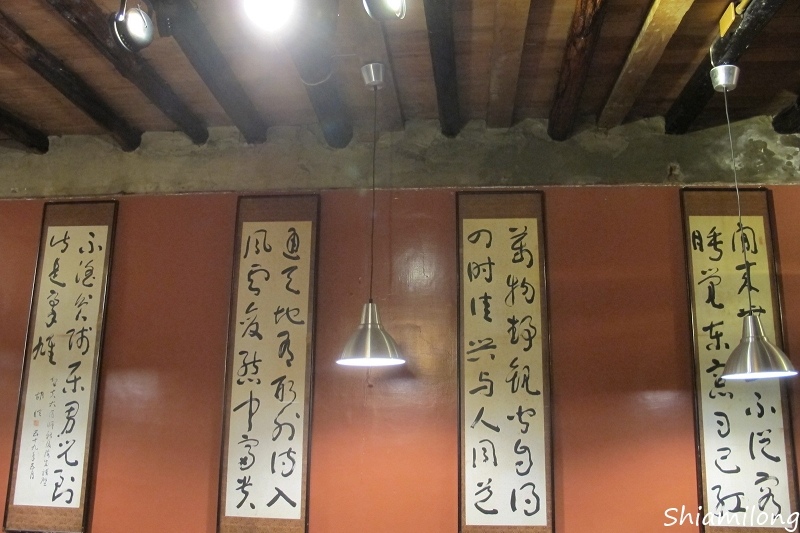 閒來不從容
睡覺東窗日已紅
萬物靜觀皆自得
四時佳興与人同道
通天地有形外思入
風雲變態中富貴
不淫貧賤樂男兒到
此是豪雄
Shiamilong